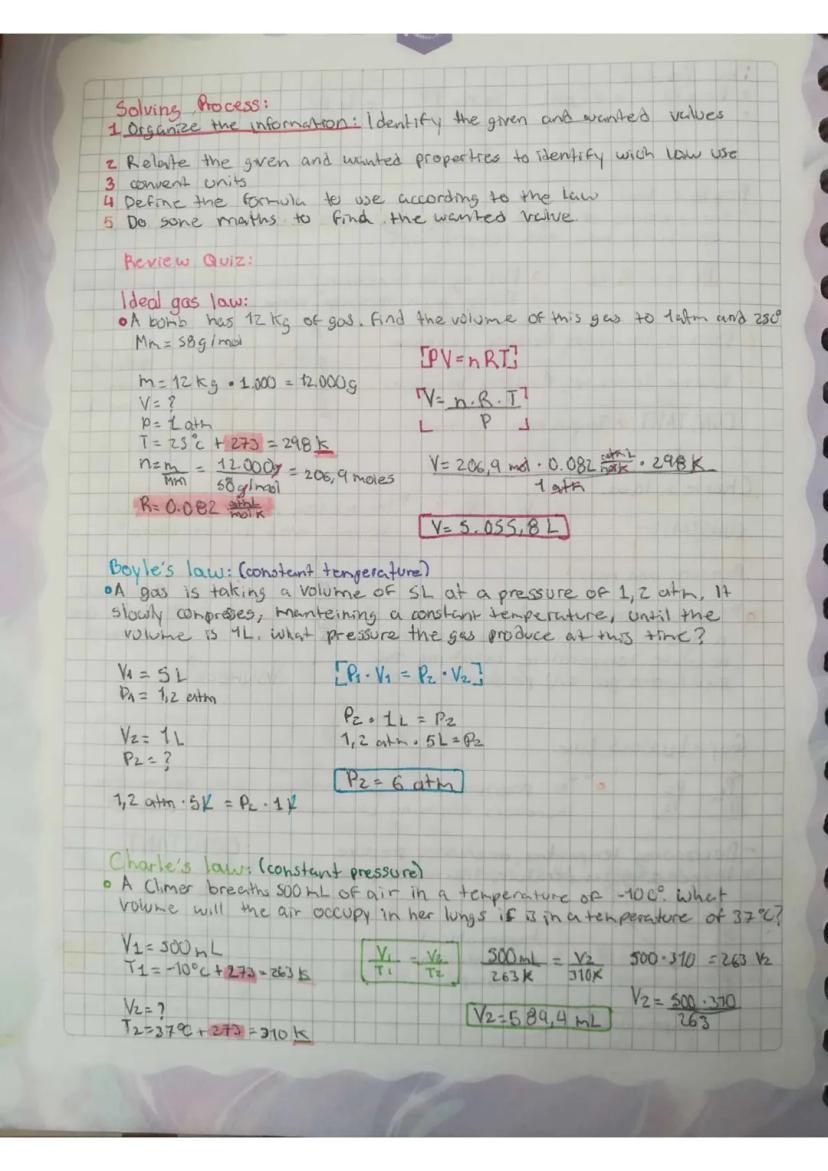 Solving Process:
1 Organize the information: Identify the given and wanted values
2 Relate the given and wanted properties to identify wich law use
3 convert units
4 Define the formula to use according to the Law
5 Do some maths to find the wanted value.
Review Quiz:
Ideal gas law:
• A bomb has 12 Kg of gas. Find the volume of this gas to 1atm and 25C°
Mm = 58g/mol
[PV = nRT]
m = 12 kg • 1.000 = 12.000g
V = ?
P = 1 atm
T = 25°C + 273 = 298 K
n = m/Mm = 12.000g/58g/mol = 206,9 moles
R = 0.082 atm L/mol K
[V = n.R.T/P]
V = 206,9 mol • 0.082 atm L/mol K • 298 K/1 atm
V = 5.055,8 L
Boyle's law: (constant temperature)
• A gas is taking a volume of 5L at a pressure of 1,2 atm. It
slowly compreses, manteining a constant temperature, until the
volume is 1L. what pressure the gas produce at this time?
V1 = 5 L
P1 = 1,2 atm
V2 = 1 L
P2 = ?
1,2 atm • 5L = P2 • 1L
[P1 • V1 = P2 • V2]
P2 • 1L = P2
1,2 atm • 5L = P2
P2 = 6 atm
Charle's law: (constant pressure)
• A Climer breaths 500 mL of air in a temperature of -10C°. what
volume will the air occupy in her lungs if is in a temperature of 37°C?
V1 = 500 mL
T1 = -10°C + 273 = 263 K
V2 = ?
T2 = 37°C + 273 = 310 K
V1/T1 = V2/T2
500 mL/263 K = V2/310K
500 • 310 = 263 V2
V2 = 500 • 310/263
V2 = 589,4 mL